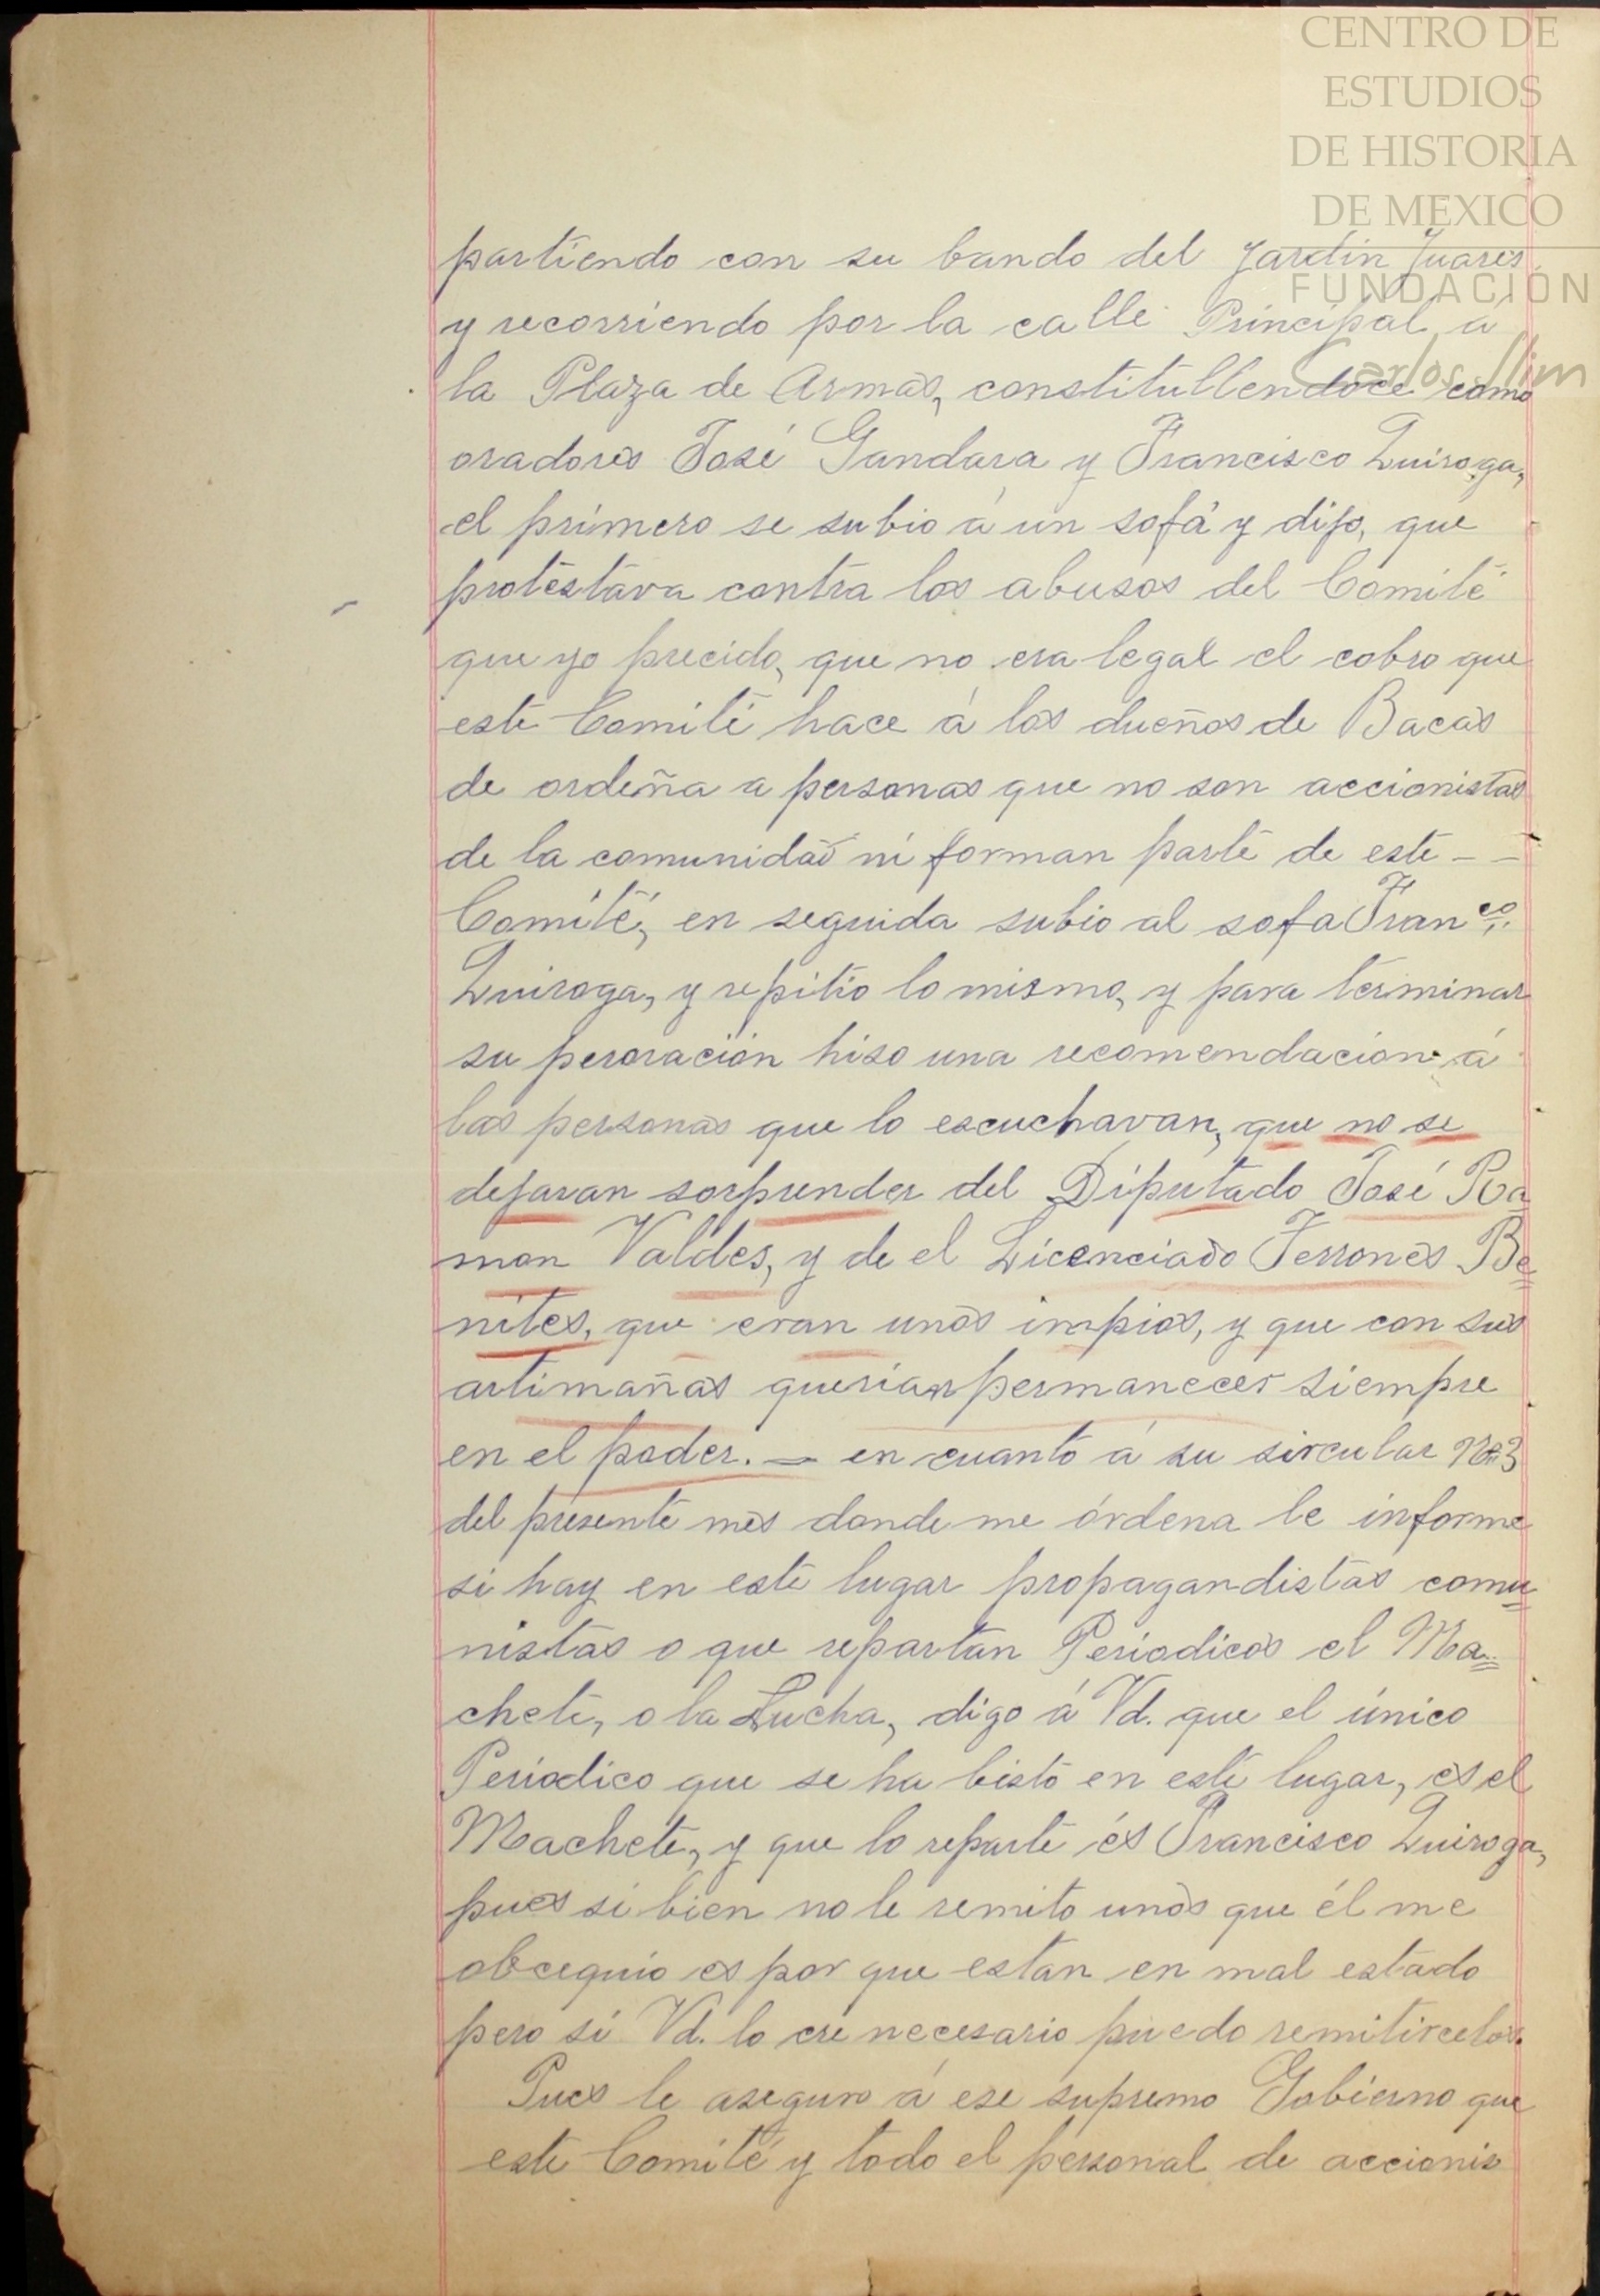 CENTRO DE
ESTUDIOS
DE HISTORIA
DE MEXICO
FUNDACIÓN
Carlos Slim
partiendo con su bando del Jardin Juares
y recorriendo por la calle Principal á
la Plaza de Armas, constitullendoce como
oradores José Gandara y Francisco Quiroga,
el primero se subio á un sofá y dijo, que
protestava contra los abusos del Comité
que yo precido, que no era legal el cobro que
este Comité hace á los dueños de Bacas
de ordeña a personas que no son accionistas
de la comunidad ni forman parte de este - -
Comité, en seguida subio al sofa Franco.
Quiroga, y repitio lo mismo, y para terminar
su peroración hiso una recomendación á
las personas que lo escuchavan, que no se
dejaran sorprender del Diputado José Ra
mon Valdes, y de el Licenciado Terrones Be=
nites, que eran unos impios, y que con sus
artimañas querian permanecer siempre
en el poder. — en cuanto á su sircular No 3
del presente mes donde me órdena le informe
si hay en este lugar propagandistas comu=
nistas o que repartan Periodicos el Ma=
chete, o la Lucha, digo á Vd. que el único
Periodico que se ha bisto en este lugar, es el
Machete, y que lo reparte és Francisco Quiroga,
pues si bien no le remito unos que él me
obcequio es por que estan en mal estado
pero si Vd. lo cre necesario puedo remitircelos.
Pues le aseguro á ese supremo Gobierno que
este Comité y todo el personal de accionis